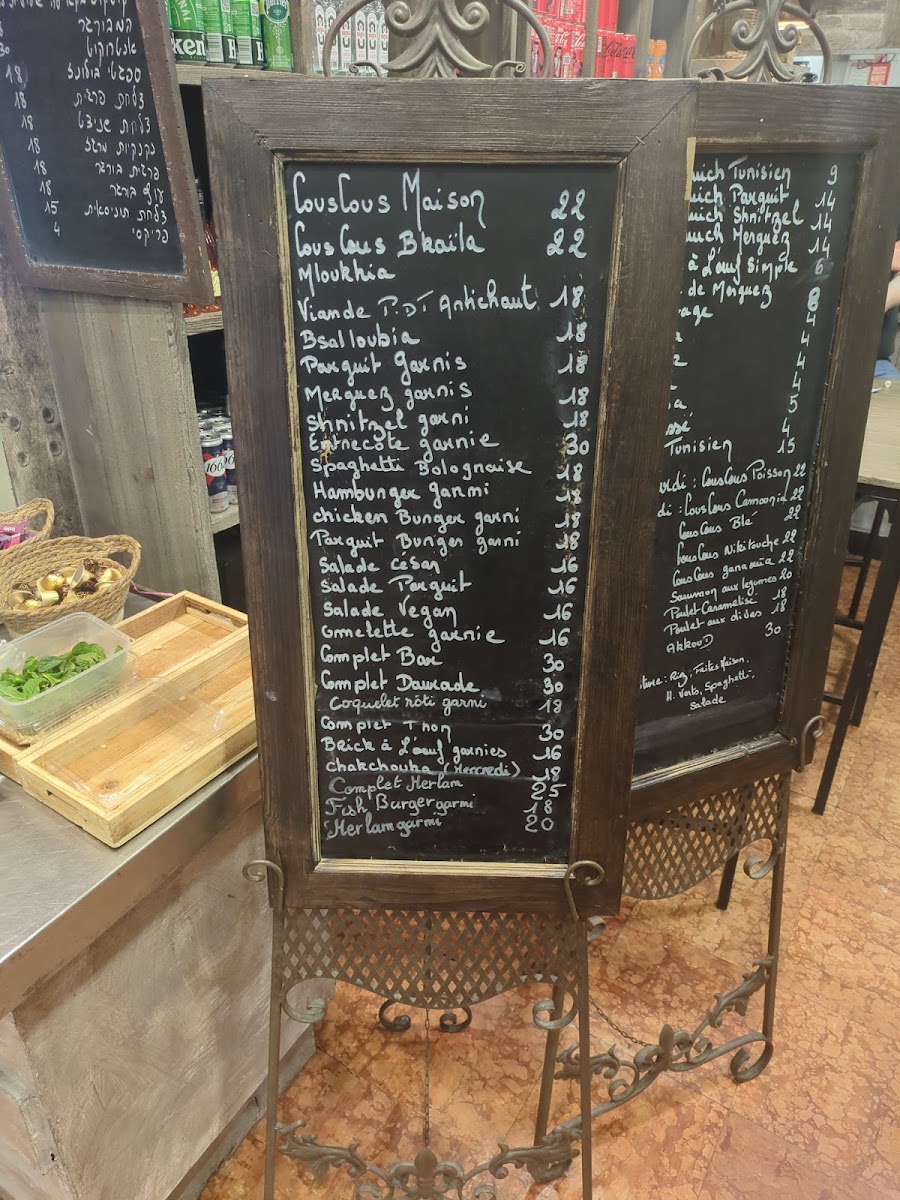 המבורגר
אנטריקוט 30
ספגטי בולונז 18
צלחת פרגית 18
צלחת שניצל 18
נקנקיות מרגז 18
פרגית בורגר 18
עוף בורגר 18
צלחת תוניסאית 15
פריקסי 4
CousCous Maison 22
CousCous Bkaïla 22
Mloukhia
Viande P.DT Antichaut 18
Bsalloubia 18
Parguit Garnis 18
Merguez garnis 18
Shnitzel garni 18
Entrecôte garnie 30
Spaghetti Bolognaise 18
Hamburger garni 18
chicken Burger garni 18
Parguit Burger garni 18
Salade César 16
Salade Parguit 16
Salade Vegan 16
Omelette garnie 16
Complet Bar 30
Complet Daurade 30
Coquelet rôti garni 18
Complet Thon 30
Brick à L'œuf garnies 16
Chakchouka (Mercredi) 18
Complet Merlan 25
Fish Burger garni 18
Merlan garni 20
uich Tunisien 9
uich Parguit 14
uich Shnitzel 14
uich Merguez 14
à L'œuf Simple 6
de Merguez 8
age 4
4
4
4
5
4
Tunisien 15
di : CousCous Poisson 22
di : CousCous Camounia 22
CousCous Blé 22
CousCous Nikitouche 22
CousCous ganaoia 22
Saumon aux legumes 20
Poulet Caramélisé 18
Poulet aux olives 18
AkkouD 30
iture : Riz, Frites Maison,
H. Verts, Spaghetti,
Salade